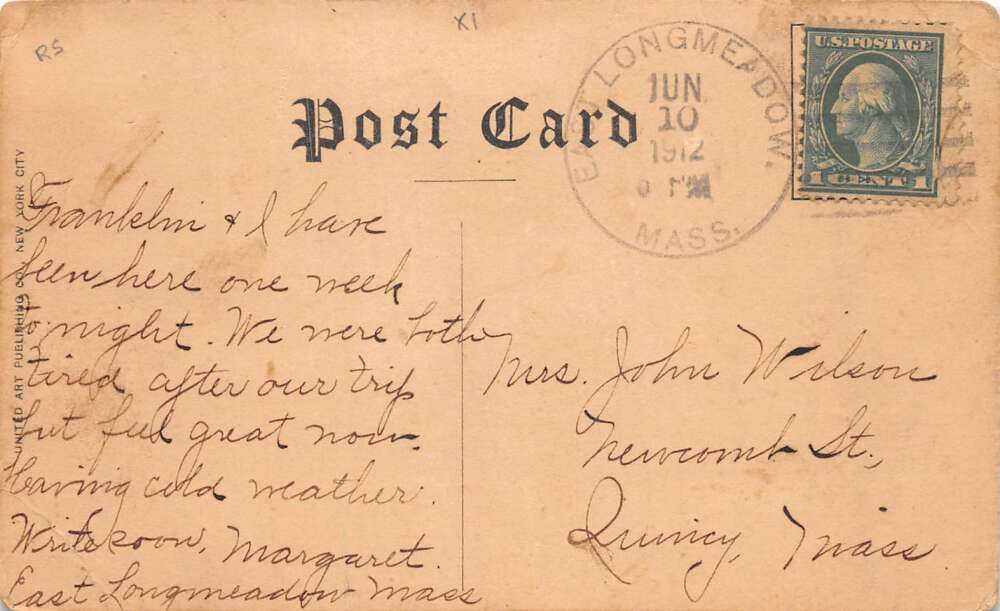 RS
XI
Post Card
EAST LONGMEADOW.
JUN
10
1912
PM
MASS.
U.S. POSTAGE
1 CENT 1
UNITED ART PUBLISHING CO., NEW YORK CITY
Franklin & I have
been here one week
to night. We were both
tired after our trip
but feel great now.
Having cold weather.
Write soon, Margaret.
East Longmeadow Mass
Mrs. John Wilson
Newcomb St.,
Quincy, Mass